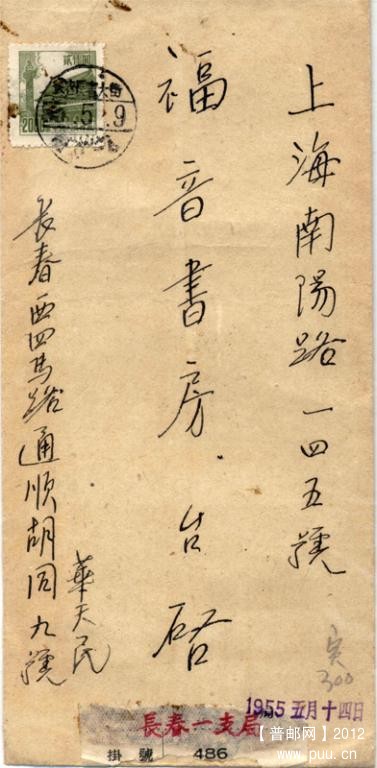 上海南陽路一四五號
福音書房 台啓
長春西四馬路通順胡同九號
華天民
1955 五月十四日
長春一支局
掛號 486
300
5 9
【普邮网】2012
www.puu.cn